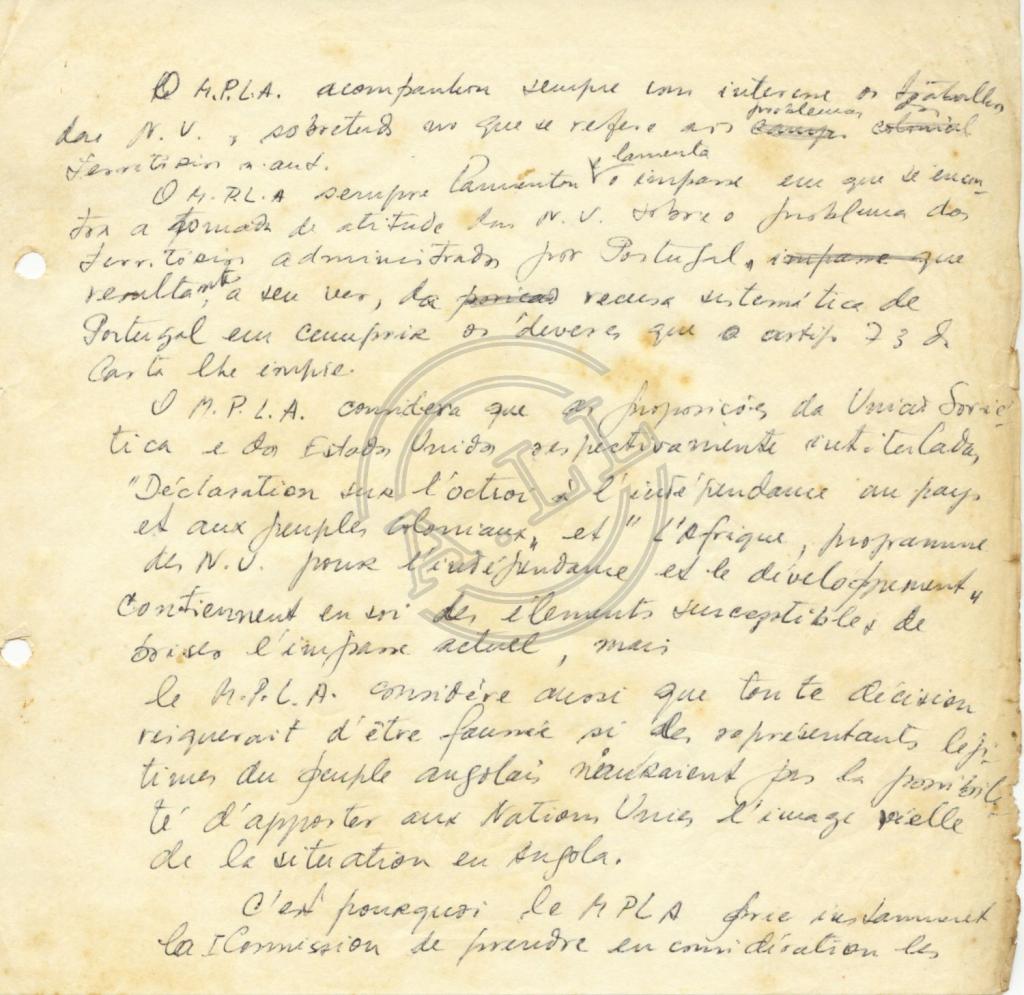 O M.P.L.A. acompanhou sempre com interesse os trabalhos
das N.U., sobretudo no que se refere aos problemas dos campo colonial
territórios n. aut.
O M.P.L.A sempre lamentou e lamenta o impasse em que se encon-
tra a tomada de atitude das N.U. sobre o problema dos
territórios administrados por Portugal, impasse que
resultante, a seu ver, da recusa sistemática de
Portugal em cumprir os deveres que o artigo 73 da
Carta lhe impõe.
O M.P.L.A. considera que as proposições da União Sovié-
tica e dos Estados Unidos respectivamente intituladas
"Déclaration sur l'octroi à l'indépendance au pays
et aux peuples coloniaux" et "L'Afrique, programme
des N.U. pour l'indépendance et le développement"
contiennent en soi des élements susceptibles de
briser l'impasse actuel, mais
le M.P.L.A. considère aussi que toute décision
risquerait d'être faussée si des représentants légi-
times du peuple angolais n'auraient pas la possibili-
té d'apporter aux Nations Unies l'image réelle
de la situation en Angola.
C'est pourquoi le MPLA prie instamment
la I Commission de prendre en considération les
A.L.L.